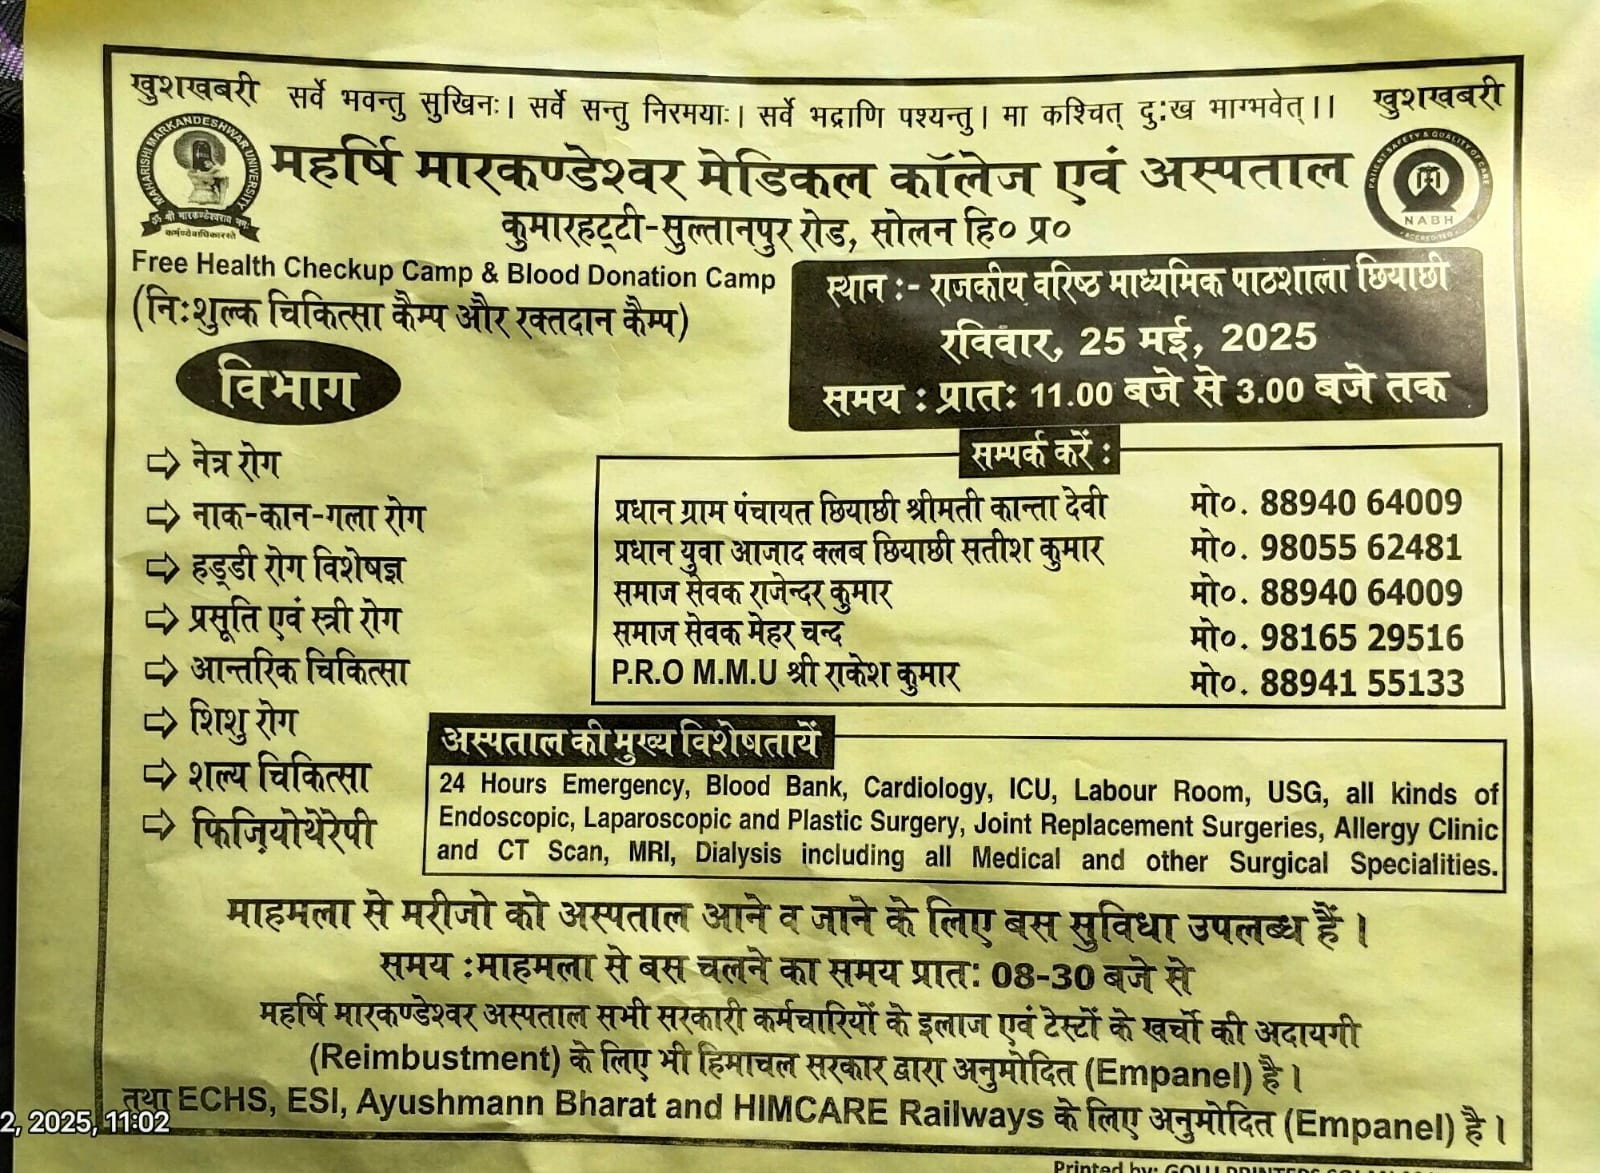 खुशखबरी सर्वे भवन्तु सुखिनः। सर्वे सन्तु निरमयाः। सर्वे भद्राणि पश्यन्तु। मा कश्चित् दुःख भाग्भवेत्।। खुशखबरी
MAHARISHI MARKANDESHWAR UNIVERSITY
ॐ श्री मारकण्डेश्वराय नमः
कर्मण्येवाधिकारस्ते
महर्षि मारकण्डेश्वर मेडिकल कॉलेज एवं अस्पताल
PATIENT SAFETY & QUALITY OF CARE
NABH
ACCREDITED
कुमारहट्टी-सुल्तानपुर रोड, सोलन हि० प्र०
Free Health Checkup Camp & Blood Donation Camp
(निःशुल्क चिकित्सा कैम्प और रक्तदान कैम्प)
स्थान :- राजकीय वरिष्ठ माध्यमिक पाठशाला छियाछी
रविवार, 25 मई, 2025
समय : प्रातः 11.00 बजे से 3.00 बजे तक
विभाग
⇨ नेत्र रोग
⇨ नाक-कान-गला रोग
⇨ हड्डी रोग विशेषज्ञ
⇨ प्रसूति एवं स्त्री रोग
⇨ आन्तरिक चिकित्सा
⇨ शिशु रोग
⇨ शल्य चिकित्सा
⇨ फिज़ियोथेरेपी
सम्पर्क करें :
प्रधान ग्राम पंचायत छियाछी श्रीमती कान्ता देवी मो०. 88940 64009
प्रधान युवा आजाद क्लब छियाछी सतीश कुमार मो०. 98055 62481
समाज सेवक राजेन्दर कुमार मो०. 88940 64009
समाज सेवक मेहर चन्द मो०. 98165 29516
P.R.O M.M.U श्री राकेश कुमार मो०. 88941 55133
अस्पताल की मुख्य विशेषतायें
24 Hours Emergency, Blood Bank, Cardiology, ICU, Labour Room, USG, all kinds of
Endoscopic, Laparoscopic and Plastic Surgery, Joint Replacement Surgeries, Allergy Clinic
and CT Scan, MRI, Dialysis including all Medical and other Surgical Specialities.
माहमला से मरीजो को अस्पताल आने व जाने के लिए बस सुविधा उपलब्ध हैं।
समय :माहमला से बस चलने का समय प्रातः 08-30 बजे से
महर्षि मारकण्डेश्वर अस्पताल सभी सरकारी कर्मचारियों के इलाज एवं टेस्टों के खर्चो की अदायगी
(Reimbustment) के लिए भी हिमाचल सरकार द्वारा अनुमोदित (Empanel) है।
तथा ECHS, ESI, Ayushmann Bharat and HIMCARE Railways के लिए अनुमोदित (Empanel) है।
2, 2025, 11:02
Printed by: GOLU PRINTERS SOLAN